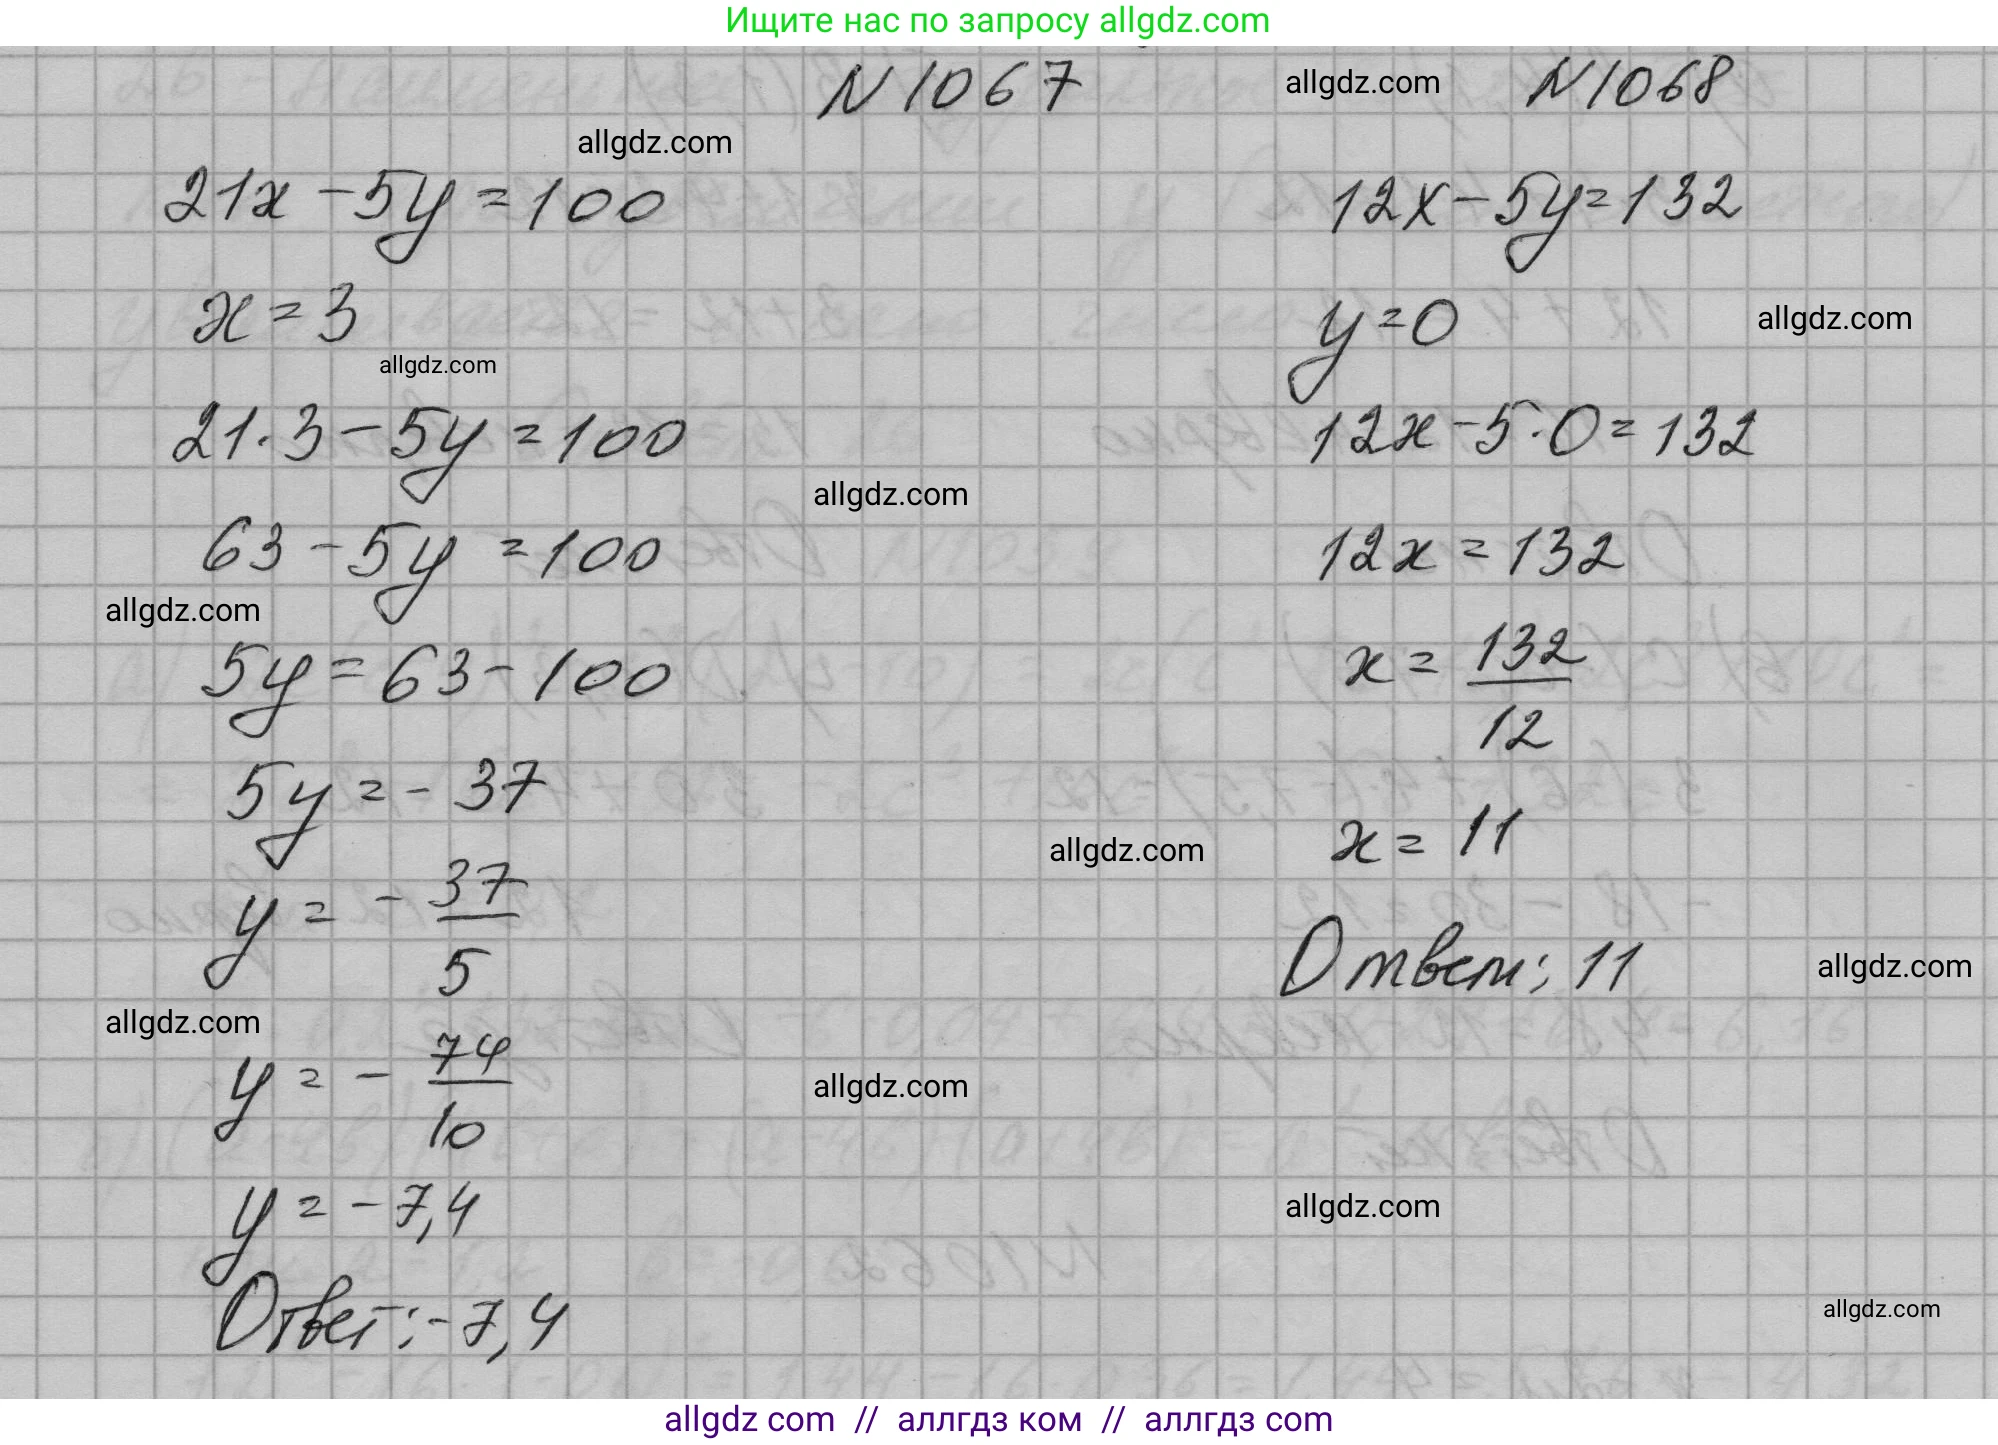 Ищите нас по запросу allgdz.com
N 1067
21x - 5y = 100
x = 3
21·3 - 5y = 100
63 - 5y = 100
5y = 63 - 100
5y = - 37
y = - 37/5
y = - 74/10
y = - 7,4
Ответ: -7,4
N 1068
12x - 5y = 132
y = 0
12x - 5·0 = 132
12x = 132
x = 132/12
x = 11
Ответ: 11
allgdz.com
allgdz.com
allgdz.com
allgdz.com
allgdz.com
allgdz.com
allgdz.com
allgdz.com
allgdz.com
allgdz.com
allgdz.com
allgdz.com
allgdz.com // аллгдз ком // аллгдз com